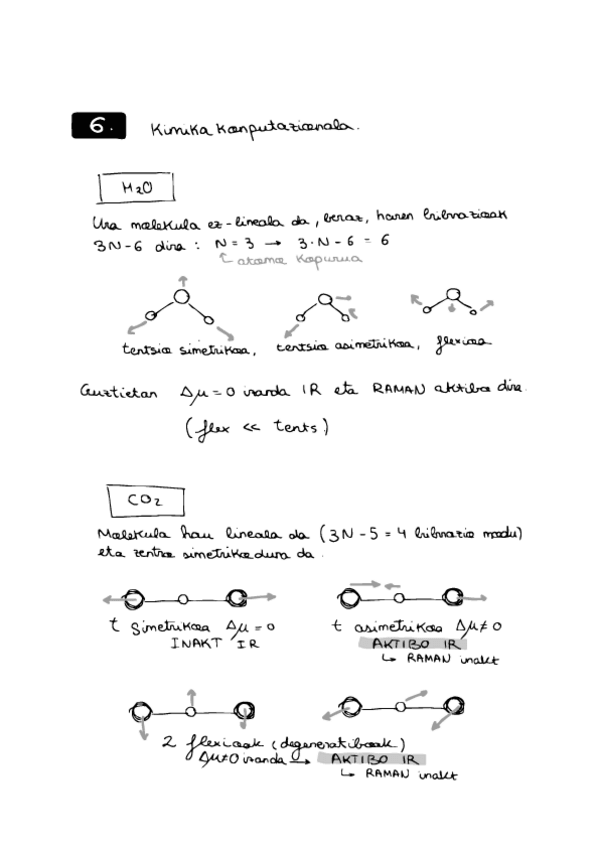 6. Kimika konputazionala.
H₂O
Ura molekula ez-lineala da, beraz, haren bibrazioak
3N-6 dira : N = 3 → 3·N - 6 = 6
atomo kopurua
tentsio simetrikoa, tentsio asimetrikoa, flexioa
Guztietan Δμ = 0 izanda IR eta RAMAN aktibo dira.
(flex << tents.)
CO₂
Molekula hau lineala da (3N - 5 = 4 bibrazio modu)
eta zentro simetrikoduna da.
t simetrikoa Δμ = 0
INAKT IR
t asimetrikoa Δμ ≠ 0
AKTIBO IR
↳ RAMAN inakt
2 flexioak (degeneratiboak)
Δμ≠0 izanda → AKTIBO IR
↳ RAMAN inakt